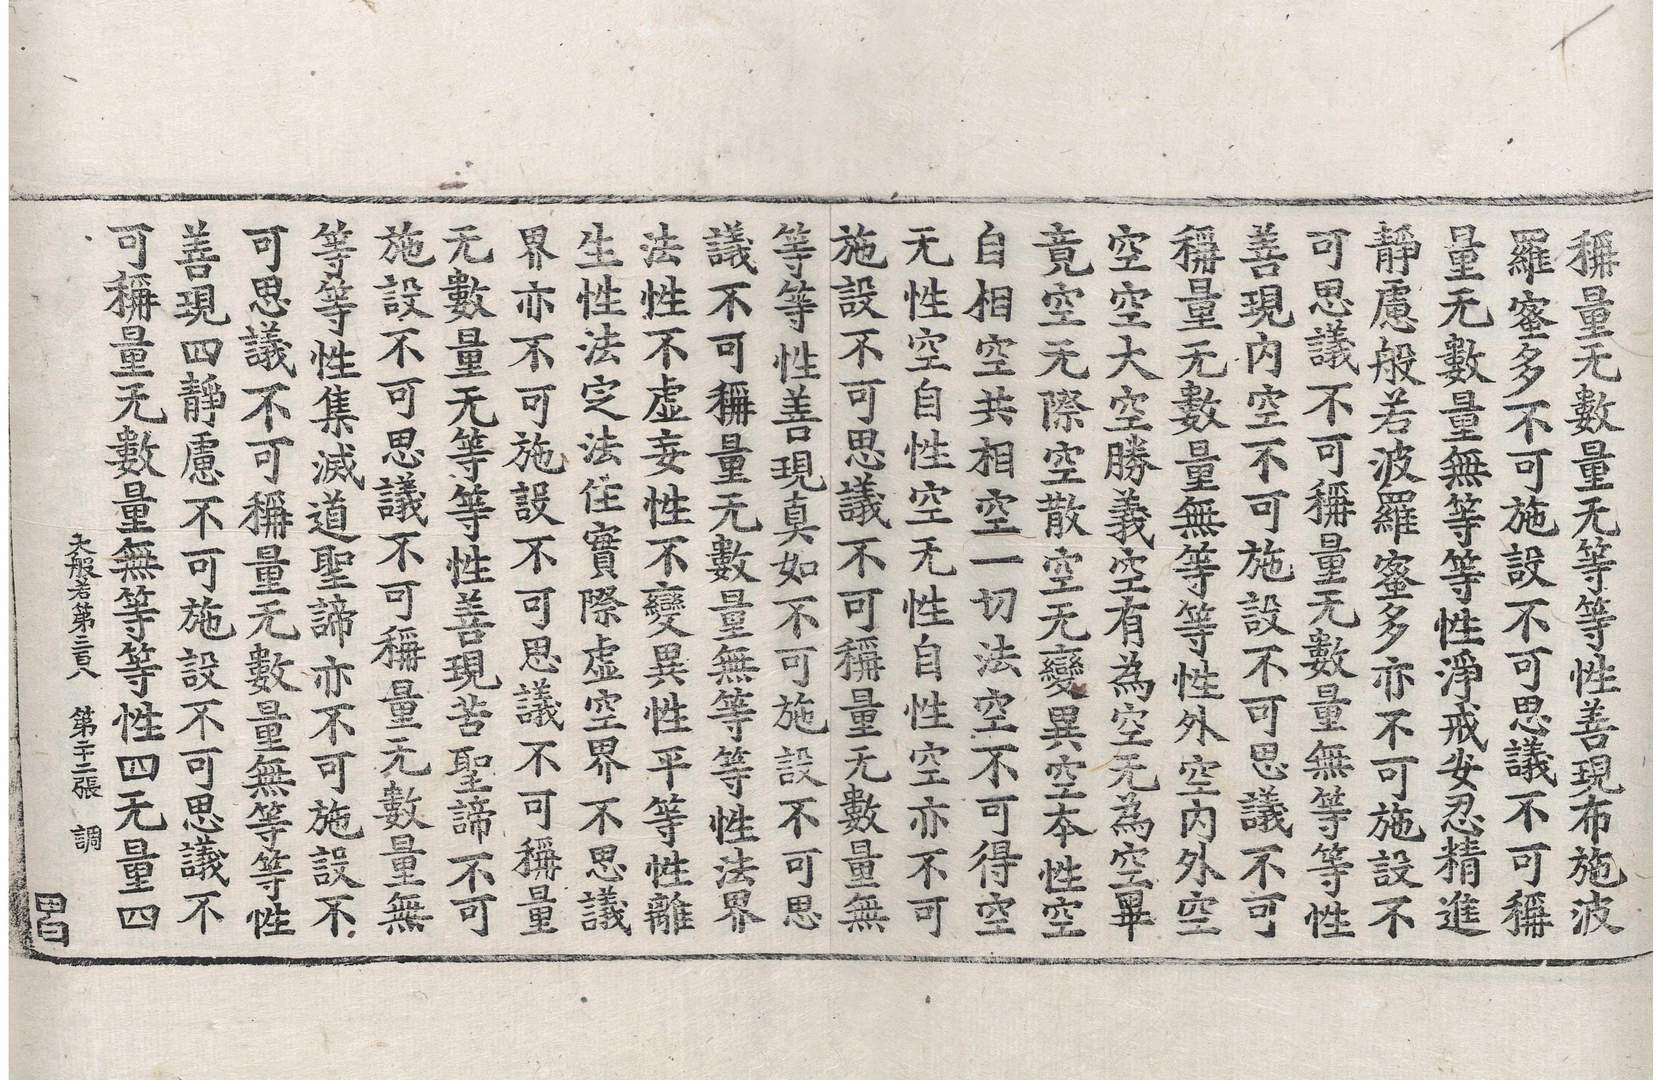 稱量无數量无等等性善現布施波
羅蜜多不可施設不可思議不可稱
量无數量無等等性淨戒安忍精進
靜慮般若波羅蜜多亦不可施設不
可思議不可稱量无數量無等等性
善現內空不可施設不可思議不可
稱量无數量無等等性外空內外空
空空大空勝義空有為空无為空畢
竟空无際空散空无變異空本性空
自相空共相空一切法空不可得空
无性空自性空无性自性空亦不可
施設不可思議不可稱量无數量無
等等性善現真如不可施設不可思
議不可稱量无數量無等等性法界
法性不虛妄性不變異性平等性離
生性法定法住實際虛空界不思議
界亦不可施設不可思議不可稱量
无數量无等等性善現苦聖諦不可
施設不可思議不可稱量无數量無
等等性集滅道聖諦亦不可施設不
可思議不可稱量无數量無等等性
善現四靜慮不可施設不可思議不
可稱量无數量無等等性四无量四
大般若第三百八 第二十二張 調